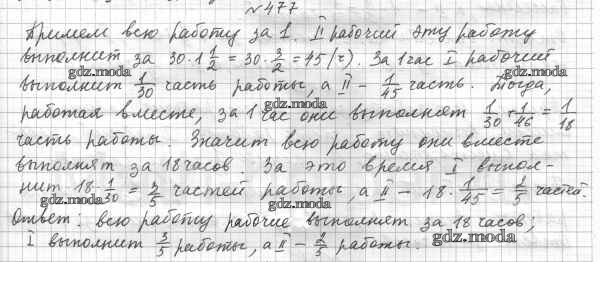 №477
Примем всю работу за 1. II рабочий эту работу
выполнит за 30·1 1/2 = 30·3/2 = 45(г). За 1 час I рабочий
gdz.moda
gdz.moda
выполнит 1/30 часть работы, а II – 1/45 часть. Тогда,
gdz.moda
работая вместе, за 1 час они выполнят 1/30 + 1/46 = 1/18
часть работы. Значит всю работу они вместе
выполнят за 18 часов. За это время I выпол-
нит 18·1/30 = 3/5 частей работы, а II – 18·1/45 = 2/5 частей.
gdz.moda
gdz.moda
gdz.moda
Ответ: всю работу рабочие выполнят за 18 часов;
I выполнит 3/5 работы, а II – 2/5 работы.
gdz.moda